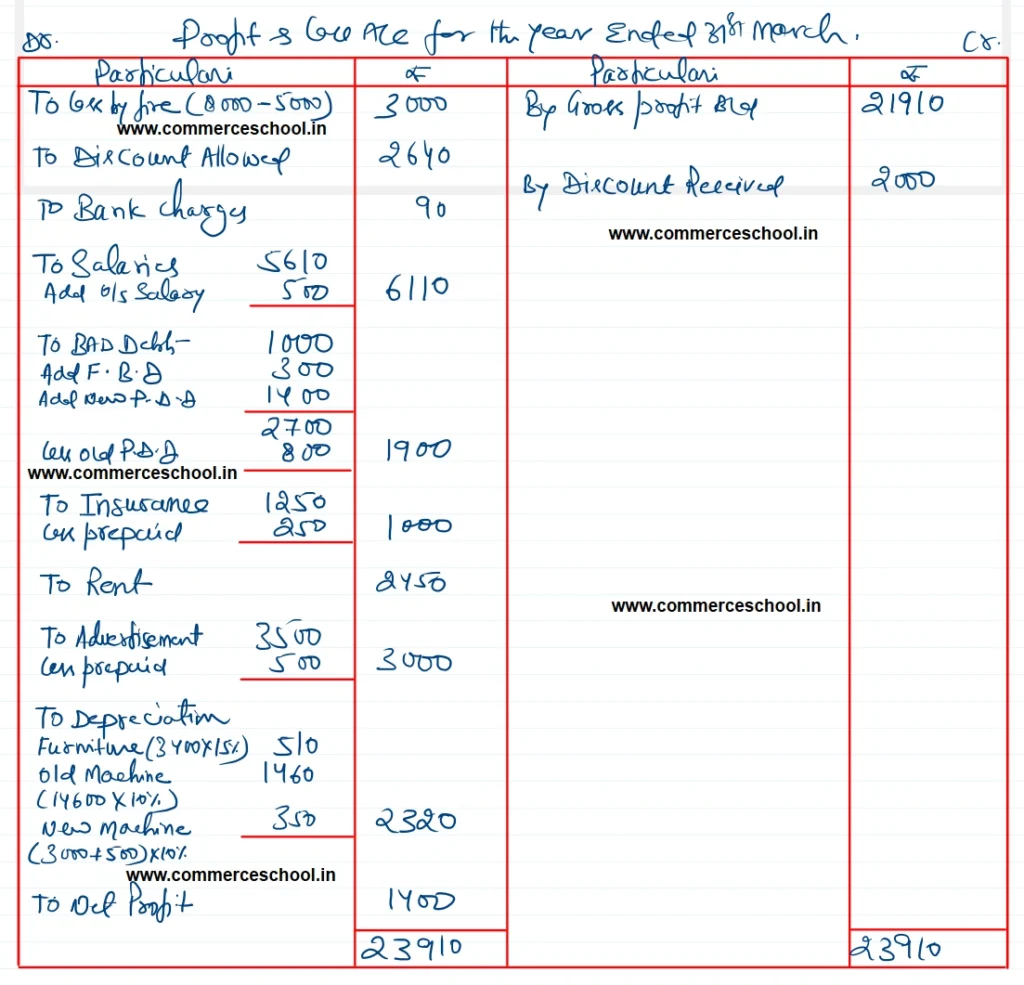 Dr. Profit & Loss A/c for the year Ended 31st March. Cr.
Particulars ₹ Particulars ₹
To loss by fire (8000 – 5000) 3000 By Gross profit B/d 21910
www.commerceschool.in
To Discount Allowed 2640
By Discount Received 2000
To Bank charges 90
www.commerceschool.in
To Salaries 5610
Add o/s Salary 500 6110
To BAD Debts 1000
Add F.B.D 300
Add New P.D.D 1400
2700
Less old P.D.D 800 1900
www.commerceschool.in
To Insurance 1250
Less prepaid 250 1000
To Rent 2450
www.commerceschool.in
To Advertisement 3500
Less prepaid 500 3000
To Depreciation
Furniture (3400X15%) 510
Old Machine 1460
(14600 X 10%)
New Machine 350 2320
(3000+500)X10%
www.commerceschool.in
To Net Profit 1400
23910 23910